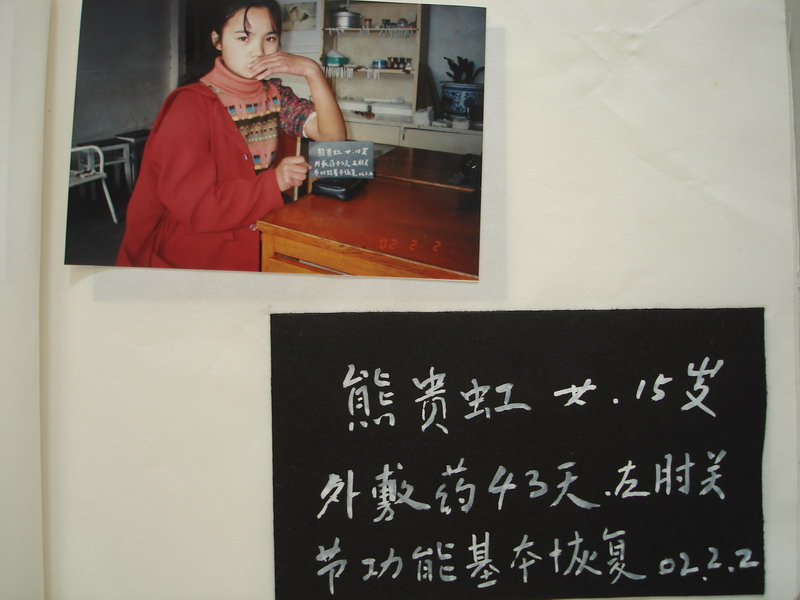 熊贵虹 女.15岁
外敷药43天左肘关
节功能基本恢复 02.2.2
02 2 2
熊贵虹 女.15岁
外敷药43天.左肘关
节功能基本恢复 02.2.2